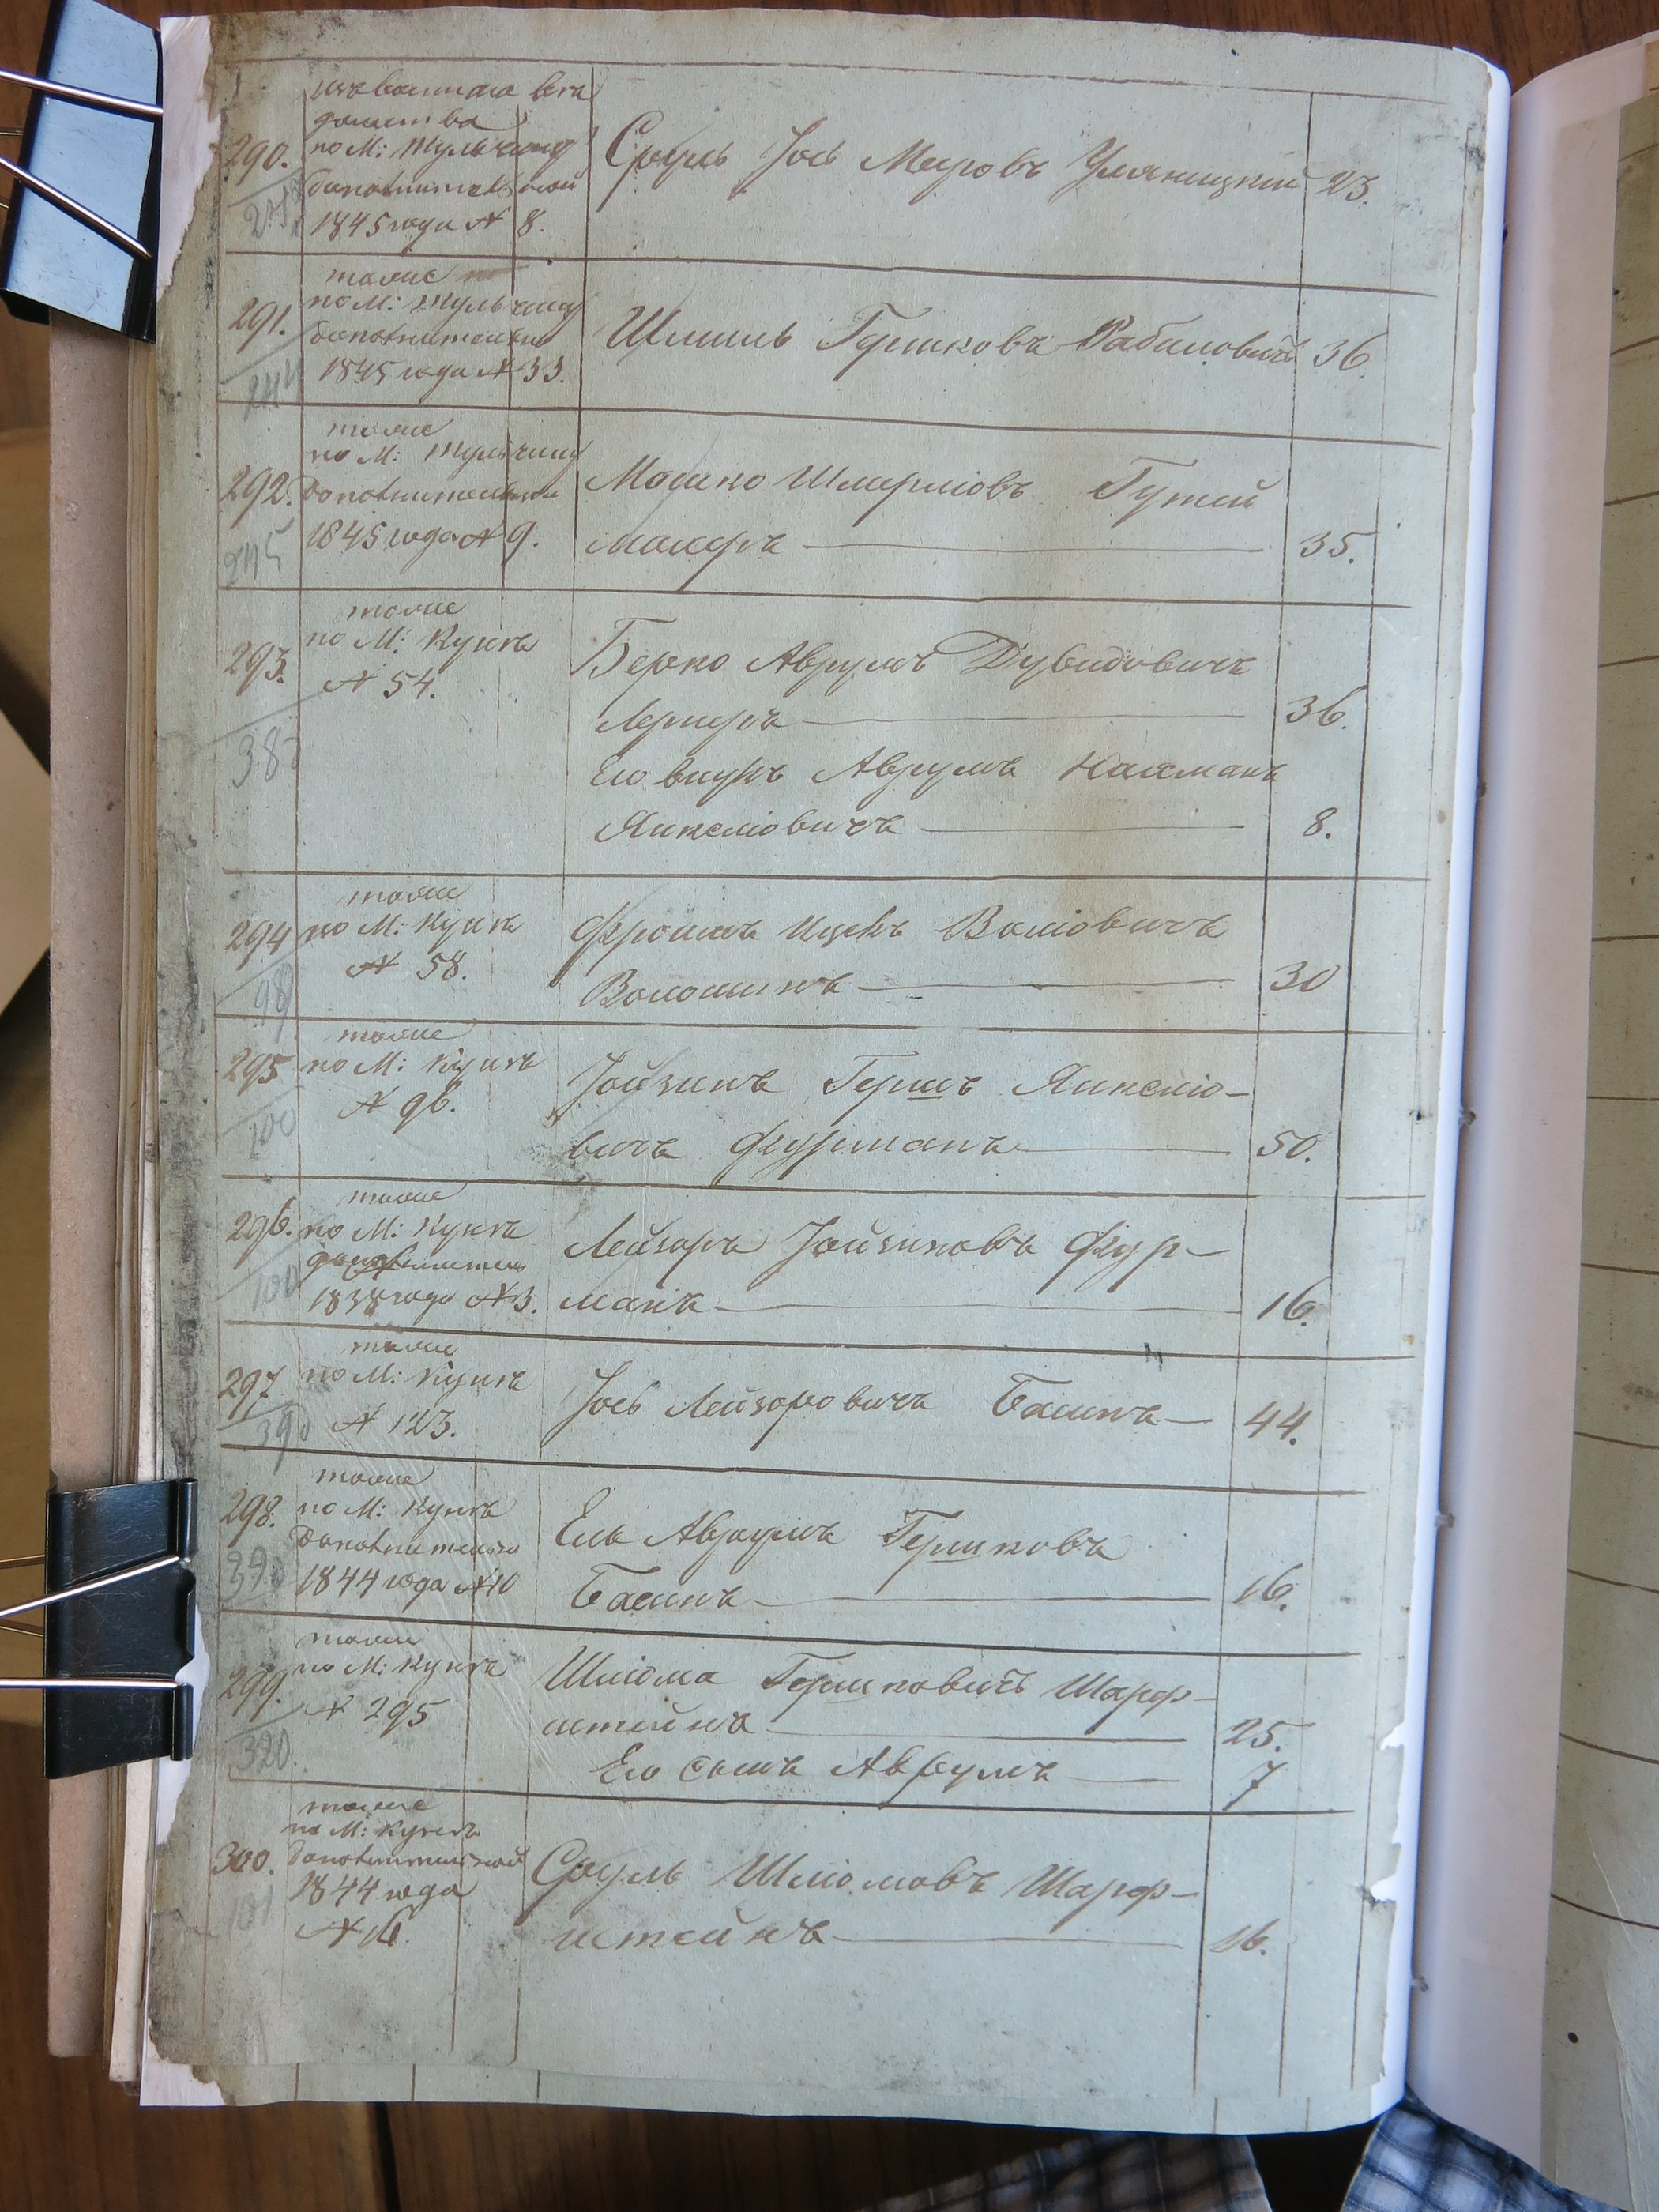 290.
по М: Тульчину
дополнительной
1845 года № 8.
Сруль Іось Меировъ Уляницкій 23.
291.
тоже
по М: Тульчину
дополнительно
1845 года № 33.
Шмиль Гершковъ Рабиновичъ 36.
292.
тоже
по М: Тульчину
Дополнительно
1845 года № 9.
Мошко Шмерліовъ Гутей
махеръ 35.
293.
тоже
по М: Кунѣ
№ 54.
Берко Аврумъ Дувидовичъ
Лернеръ 36.
Его внукъ Аврумъ Нахманъ
Янкеліовичъ 8.
294
98
тоже
по М: Кунѣ
№ 58.
Фроимъ Ицекъ Волiовичъ
Волошинъ 30
295
100
тоже
по М: Кунѣ
№ 96.
Іойзинъ Гершъ Янкеліо-
вичъ Фурманъ 50.
296.
100
тоже
по М: Кунѣ
1838 года № 3.
Лейзоръ Іойзиковъ Фур-
манъ 16.
297
390
тоже
по М: Кунѣ
№ 123.
Іось Лейзоровичъ Басинъ 44.
298.
390
тоже
по М: Кунѣ
Дополнительно
1844 года № 10
Ель Аврумъ Гершковъ
Басинъ 16.
299.
320.
тоже
по М: Кунѣ
№ 295
Шліома Гершковичъ Шарф-
штейнъ 25.
Его сынъ Аврумъ 7
300.
101
тоже
по М: Кунѣ
дополнительной
1844 года
№ 16.
Сруль Шліомовъ Шарф-
штейнъ 16.